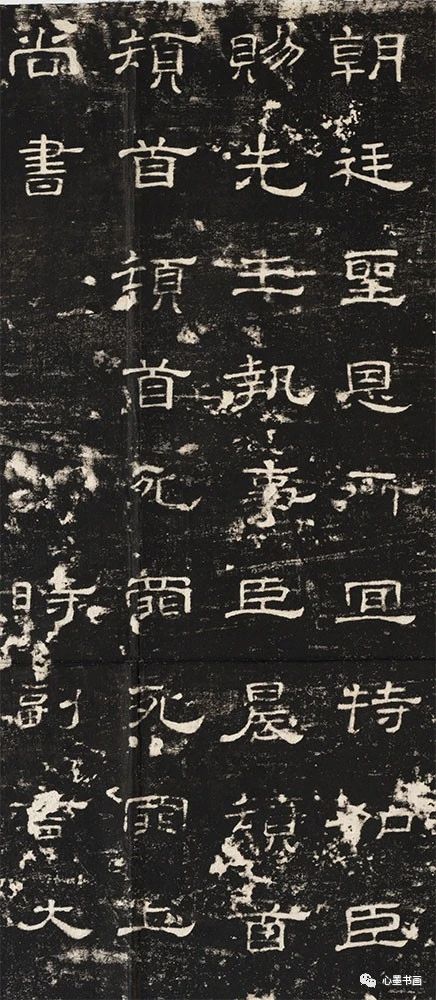 朝廷聖恩所宜特加臣
賜先生執事臣晨頓首
頓首頓首死罪死罪上
尚書 時副言大
心墨书画